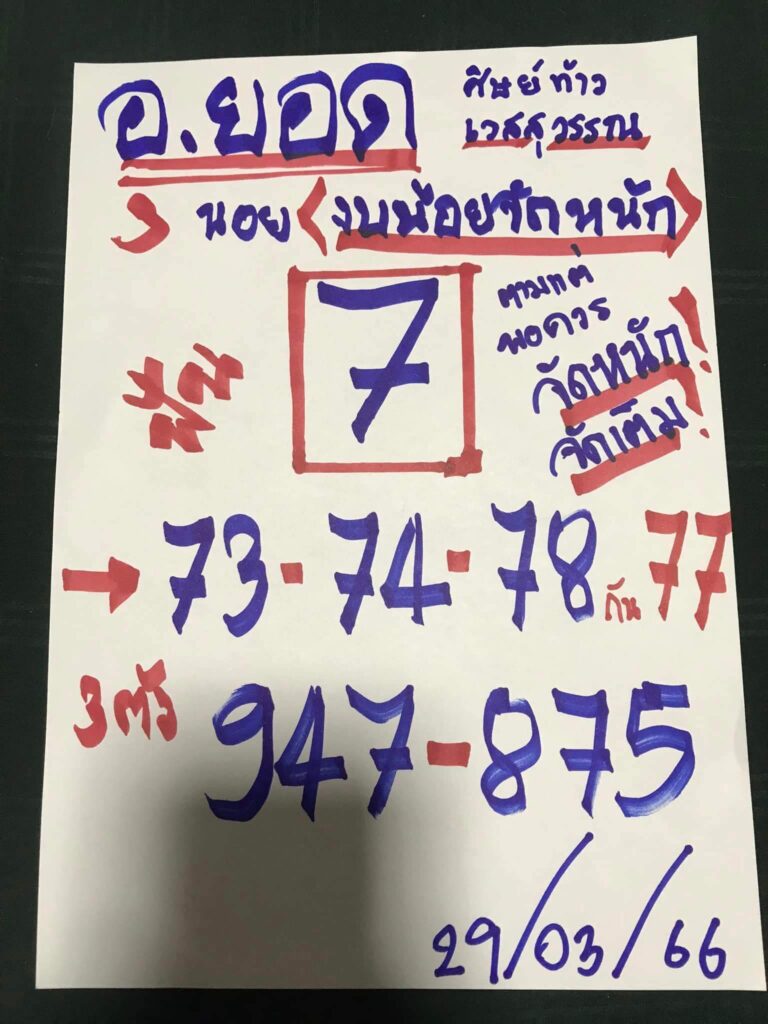 อ.ยอด
ศิษย์ท้าว
เวสสุวรรณ
3 นอย <งบน้อยจัดหนัก>
ตามแต่
พอควร
ฟัน 7
จัดหนัก!
จัดเต็ม!
→ 73-74-78 กัน 77
3 ตัว 947-875
29/03/66